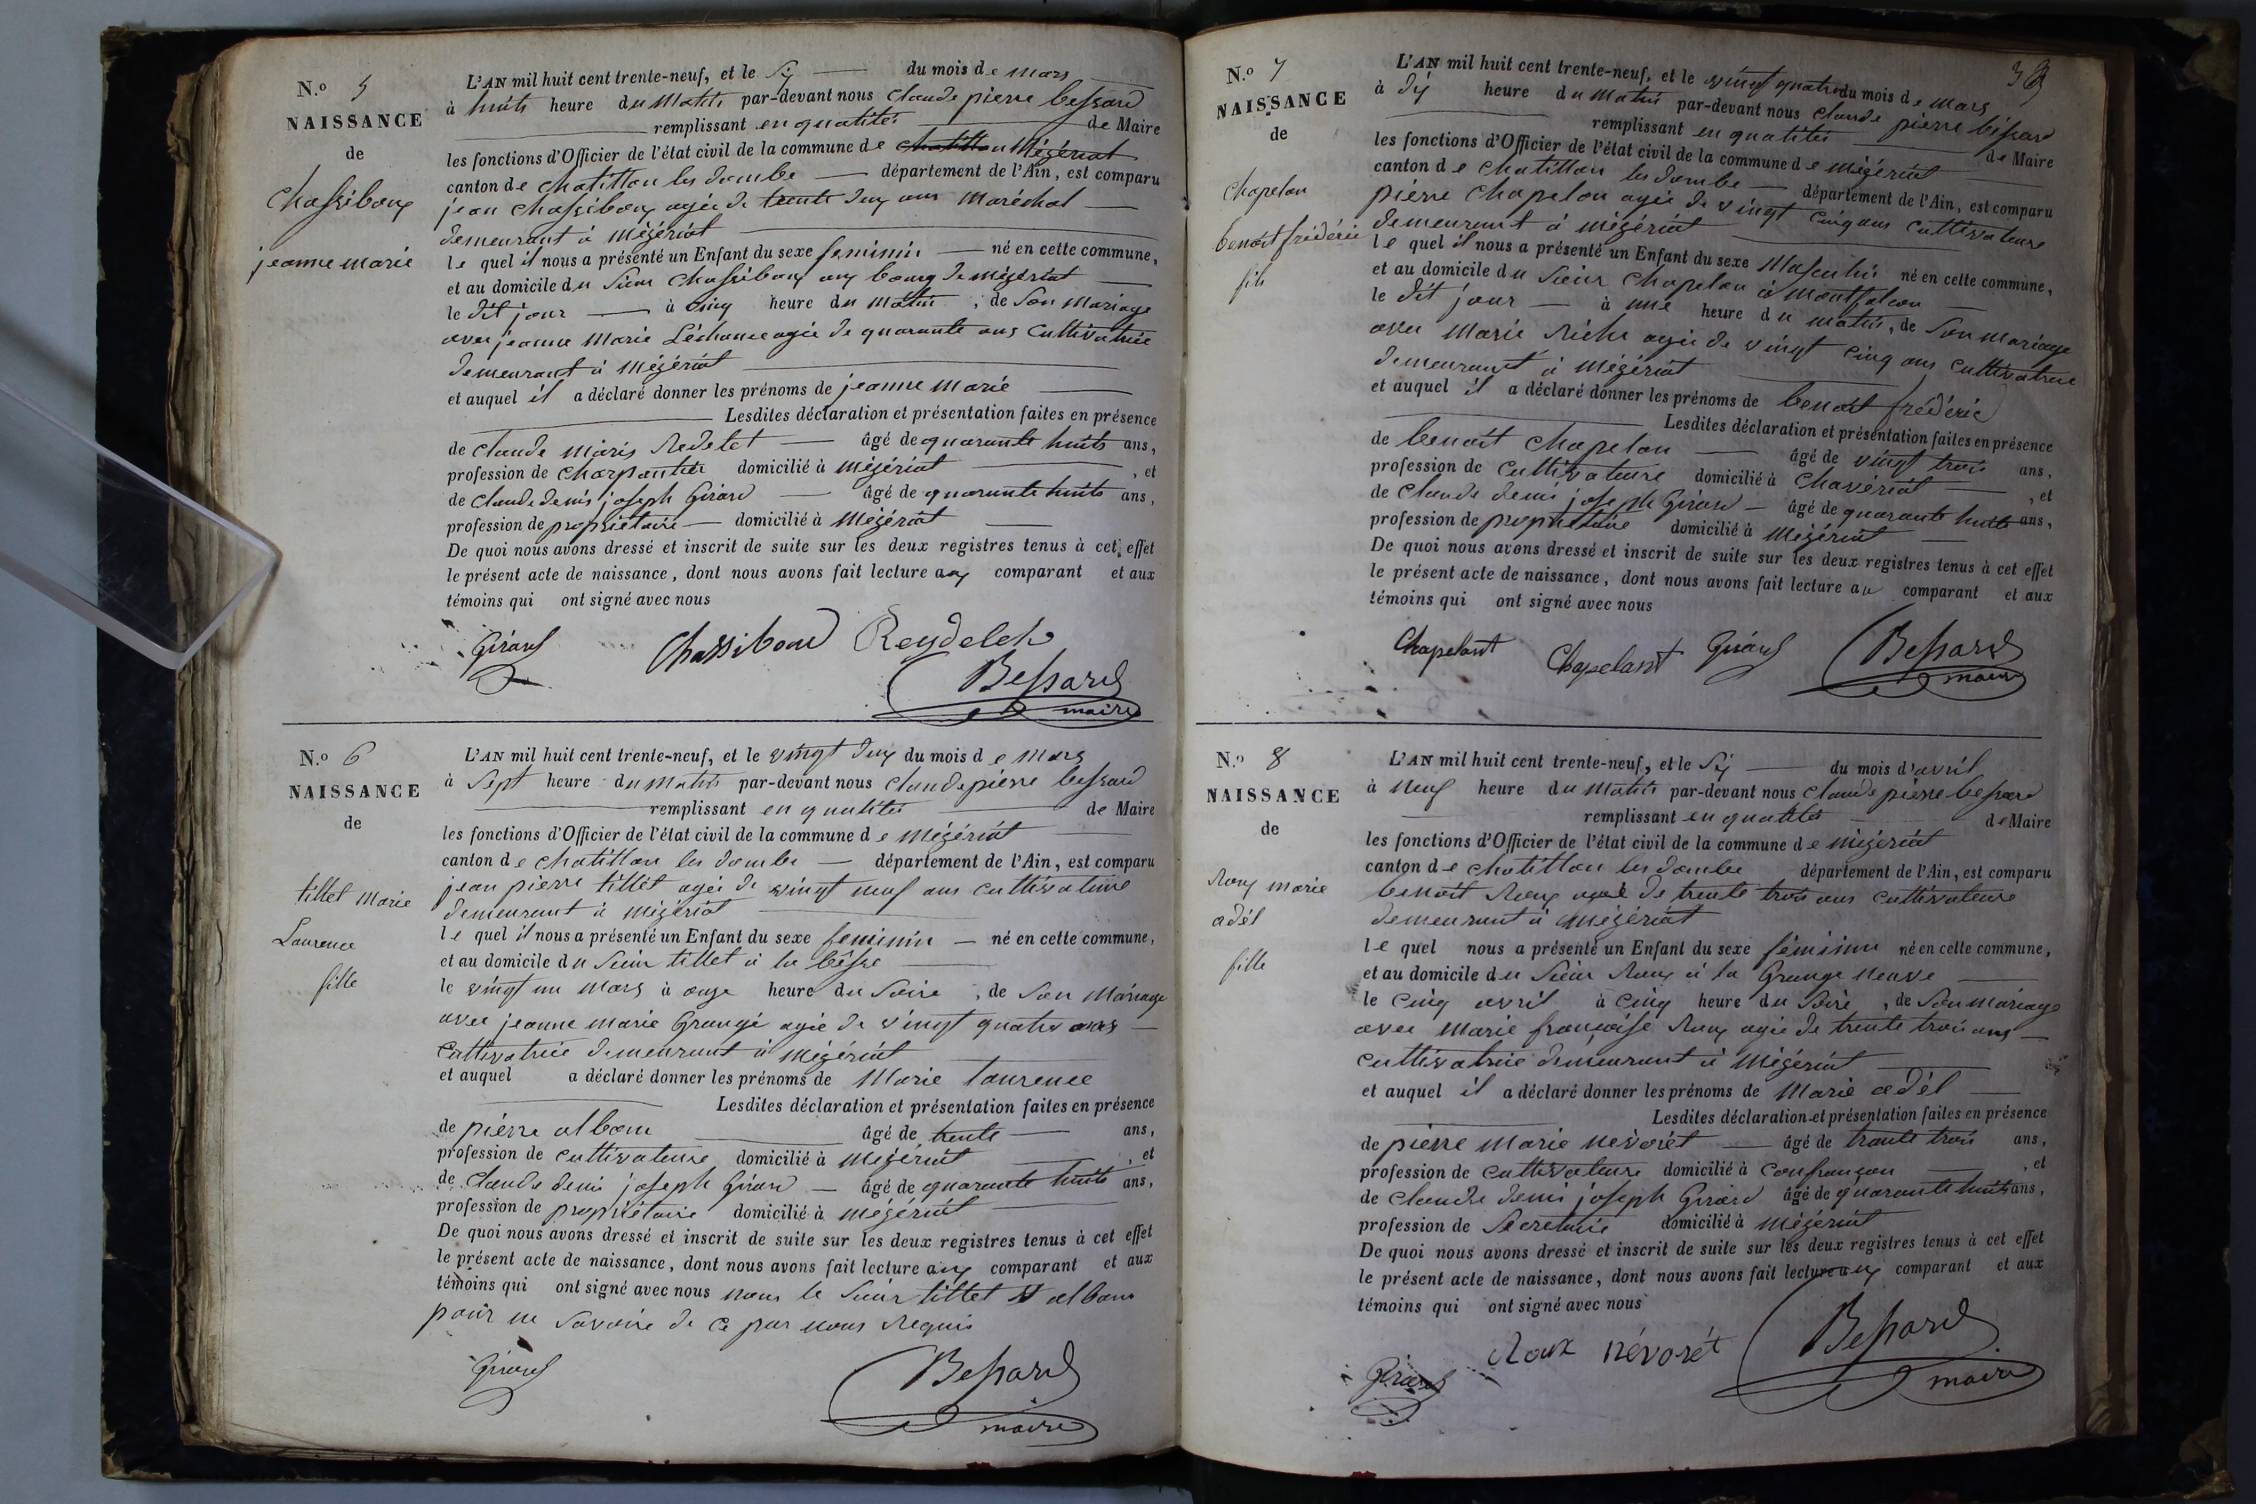 N.o 5
NAISSANCE
de
chassiboux
jeanne marie
L'AN mil huit cent trente-neuf, et le six du mois de mars
à huits heure du Matin par-devant nous claude pierre bessard
remplissant en qualités de Maire
les fonctions d'Officier de l'état civil de la commune de Mézériat
canton de chatillon les dombe département de l'Ain, est comparu
jean chassiboux agée de trente deux ans Maréchal
demeurant à Mézériat
le quel il nous a présenté un Enfant du sexe feminin né en cette commune,
et au domicile du Sieur chassiboux aux bourg de mézériat
le dit jour à cinq heure du matin, de Son mariage
avec jeanne Marie Léchance agée de quarante ans Cultivatrice
demeurant à Mézériat
et auquel il a déclaré donner les prénoms de jeanne marie
Lesdites déclaration et présentation faites en présence
de claude marie Redelet âgé de quarante huits ans,
profession de charpentier domicilié à mézériat, et
de claude denis joseph Girard âgé de quarante huits ans,
profession de propriétaire domicilié à Mézériat
De quoi nous avons dressé et inscrit de suite sur les deux registres tenus à cet effet
le présent acte de naissance, dont nous avons fait lecture aux comparant et aux
témoins qui ont signé avec nous
Girard Chassiboud Reydelet
Bessard
maire
N.o 6
NAISSANCE
de
tillet Marie
Laurence
fille
L'AN mil huit cent trente-neuf, et le vingt deux du mois de Mars
à Sept heure du Matin par-devant nous claude pierre bessard
remplissant en qualités de Maire
les fonctions d'Officier de l'état civil de la commune de Mézériat
canton de chatillon les dombe département de l'Ain, est comparu
jean pierre tillet agée de vingt neuf ans cultivateure
demeurant à mézériat
le quel il nous a présenté un Enfant du sexe feminin né en cette commune,
et au domicile du Sieur tillet à la bésse
le vingt un Mars à onze heure du Soire, de Son Mariage
avec jeanne marie Grangé agée de vingt quatre ans
cultivatrice demeurant à mézériat
et auquel a déclaré donner les prénoms de Marie Laurence
Lesdites déclaration et présentation faites en présence
de pierre alban âgé de trente ans,
profession de cultivateure domicilié à mézériat, et
de claude denis joseph Girard âgé de quarante huits ans,
profession de propriétaire domicilié à mézériat
De quoi nous avons dressé et inscrit de suite sur les deux registres tenus à cet effet
le présent acte de naissance, dont nous avons fait lecture aux comparant et aux
témoins qui ont signé avec nous nom le Sieur tillet et alban
pour ne Savoire de ce par nous Requis
Girard
Bessard
maire
N.o 7
NAISSANCE
de
chapelon
benoit fréderic
fils
L'AN mil huit cent trente-neuf, et le vingt quatre du mois de mars
à dix heure du Matin par-devant nous claude pierre béssard
remplissant en qualités de Maire
les fonctions d'Officier de l'état civil de la commune de mézériat
canton de chatillon les dombe département de l'Ain, est comparu
pierre chapelon agée de vingt cinq ans cultivateure
demeurant à mézériat
le quel il nous a présenté un Enfant du sexe Masculin né en cette commune,
et au domicile du Sieur chapelon à montfalcon
le dit jour à une heure du matin, de Son mariage
avec Marie Riche agée de vingt cinq ans cultivatrice
demeurant à mézériat
et auquel il a déclaré donner les prénoms de benoit fréderic
Lesdites déclaration et présentation faites en présence
de benoit chapelon âgé de vingt trois ans,
profession de cultivateure domicilié à chavériat, et
de claude denis joseph Girard âgé de quarante huits ans,
profession de propriétaire domicilié à Mézériat
De quoi nous avons dressé et inscrit de suite sur les deux registres tenus à cet effet
le présent acte de naissance, dont nous avons fait lecture au comparant et aux
témoins qui ont signé avec nous
Chapelant Chapelant Girard Bessard
maire
N.o 8
NAISSANCE
de
Roux marie
adél
fille
L'AN mil huit cent trente-neuf, et le Six du mois d'avril
à Neuf heure du Matin par-devant nous claude pierre bessard
remplissant en qualités de Maire
les fonctions d'Officier de l'état civil de la commune de mézériat
canton de chatillon les dombe département de l'Ain, est comparu
benoit Roux agé de trente trois ans cultivateure
demeurant à mézériat
le quel nous a présenté un Enfant du sexe féminin né en cette commune,
et au domicile du Sieur Roux à la Grange neuve
le cinq avril à cinq heure du Soire, de Son mariage
avec Marie françoise Roux agée de trente trois ans
cultivatrice demeurant à Mézériat
et auquel il a déclaré donner les prénoms de Marie adél
Lesdites déclaration et présentation faites en présence
de pierre marie névorét âgé de trante trois ans,
profession de cultivateure domicilié à confrançon, et
de claude denis joseph Girard âgé de quarante huits ans,
profession de Secretaire domicilié à Mézériat
De quoi nous avons dressé et inscrit de suite sur les deux registres tenus à cet effet
le présent acte de naissance, dont nous avons fait lecture aux comparant et aux
témoins qui ont signé avec nous
Girard Roux névorét Bessard
maire